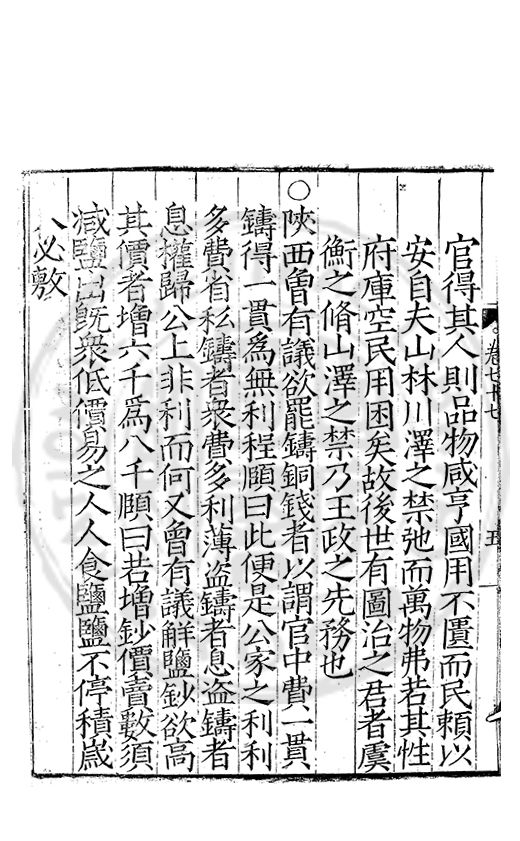 官得其人則品物咸亨國用不匱而民頼以
安自夫山林川澤之禁弛而萬物弗若其性
府庫空民用困矣故後世有圖治之君者虞
衡之脩山澤之禁乃王政之先務也
○陝西曾有議欲罷鑄銅錢者以謂官中費一貫
鑄得一貫為無利程頤曰此便是公家之利利
多費省私鑄者衆費多利薄盗鑄者息盗鑄者
息權歸公上非利而何又曾有議解鹽鈔欲高
其價者増六千為八千頤曰若増鈔價賣數須
减鹽出既衆低價易之人人食鹽鹽不停積嵗
入必敷
卷七十七
五